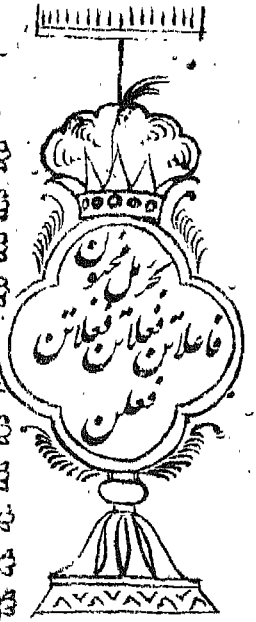 بحر رمل مخبون
فاعلاتن فعلاتن فعلاتن
فعلن